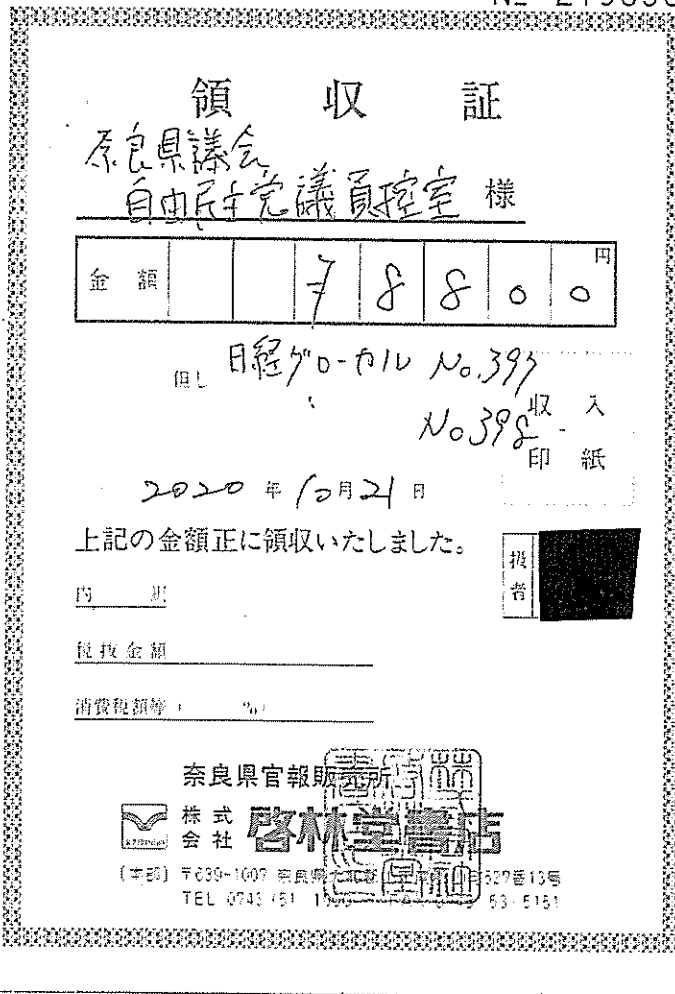 領収証
奈良県議会
自由民主党議員控室 様
金額 78800 円
但し 日経グローカル No.397
No.398
収入
印紙
2020年10月21日
上記の金額正に領収いたしました。
扱者
内訳
税抜金額
消費税額等( %)
奈良県官報販売所
株式会社 啓林堂書店
(本部) 〒639-1007 奈良県大和郡山
TEL 0743